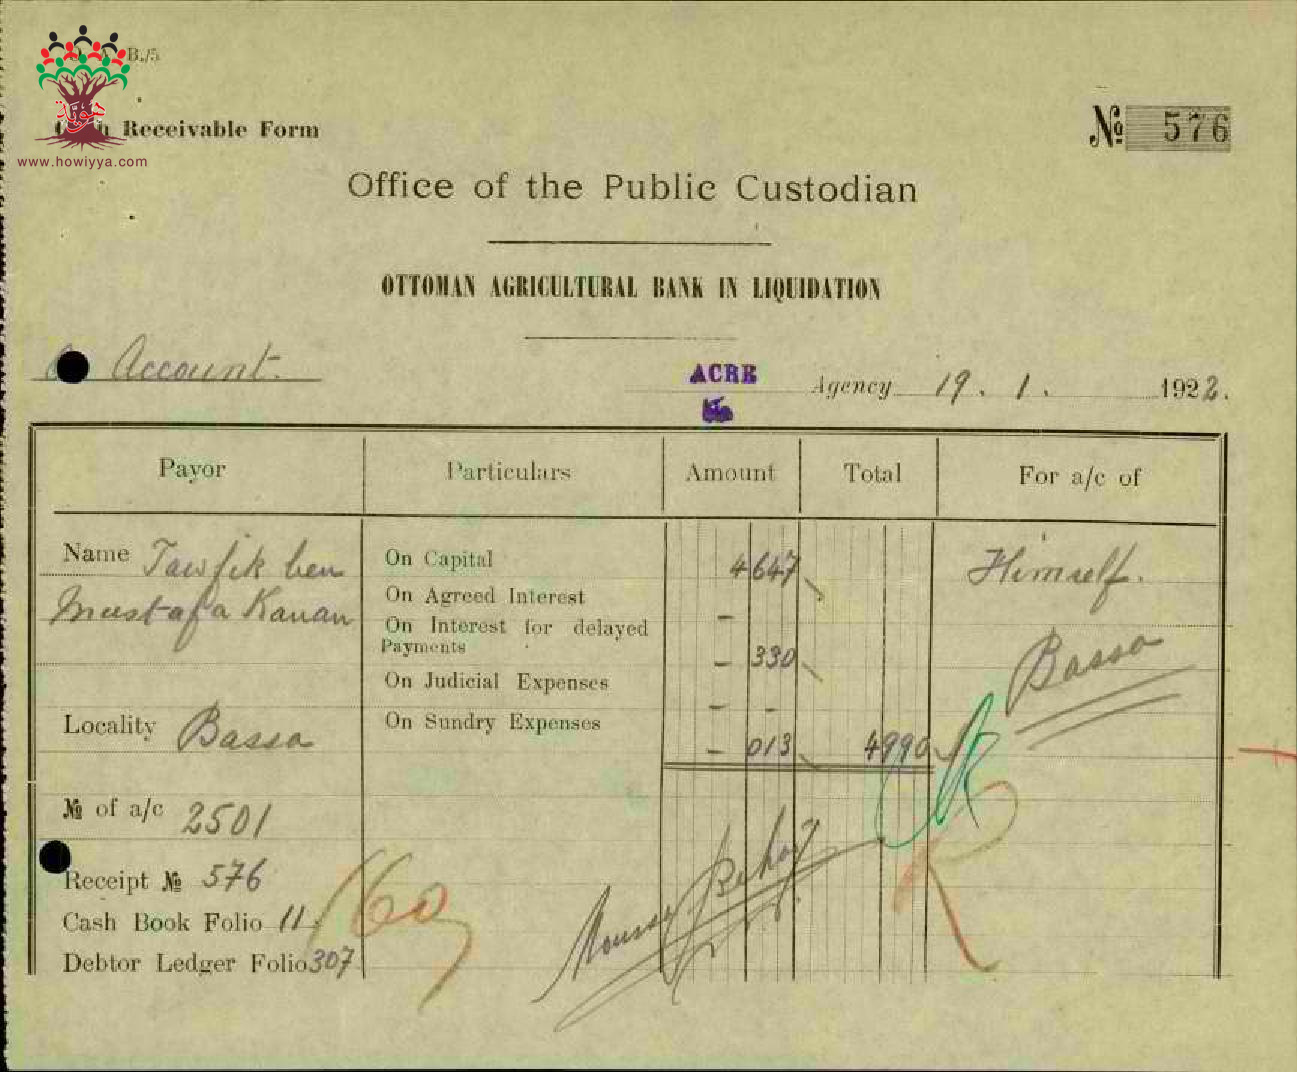 B./5
هوية
www.howiyya.com
Receivable Form
№ 576
Office of the Public Custodian
OTTOMAN AGRICULTURAL BANK IN LIQUIDATION
Account.
ACRE Agency 19. 1. 1922.
Payor Particulars Amount Total For a/c of
Name Tawfik ben
Mustafa Kanan
On Capital 4647 Himself.
On Agreed Interest —
On Interest for delayed
Payments — 330
Basso
On Judicial Expenses — —
Locality Bassa
On Sundry Expenses — 013 4990
№ of a/c 2501
Receipt № 576
Cash Book Folio 11.
Debtor Ledger Folio 307
160